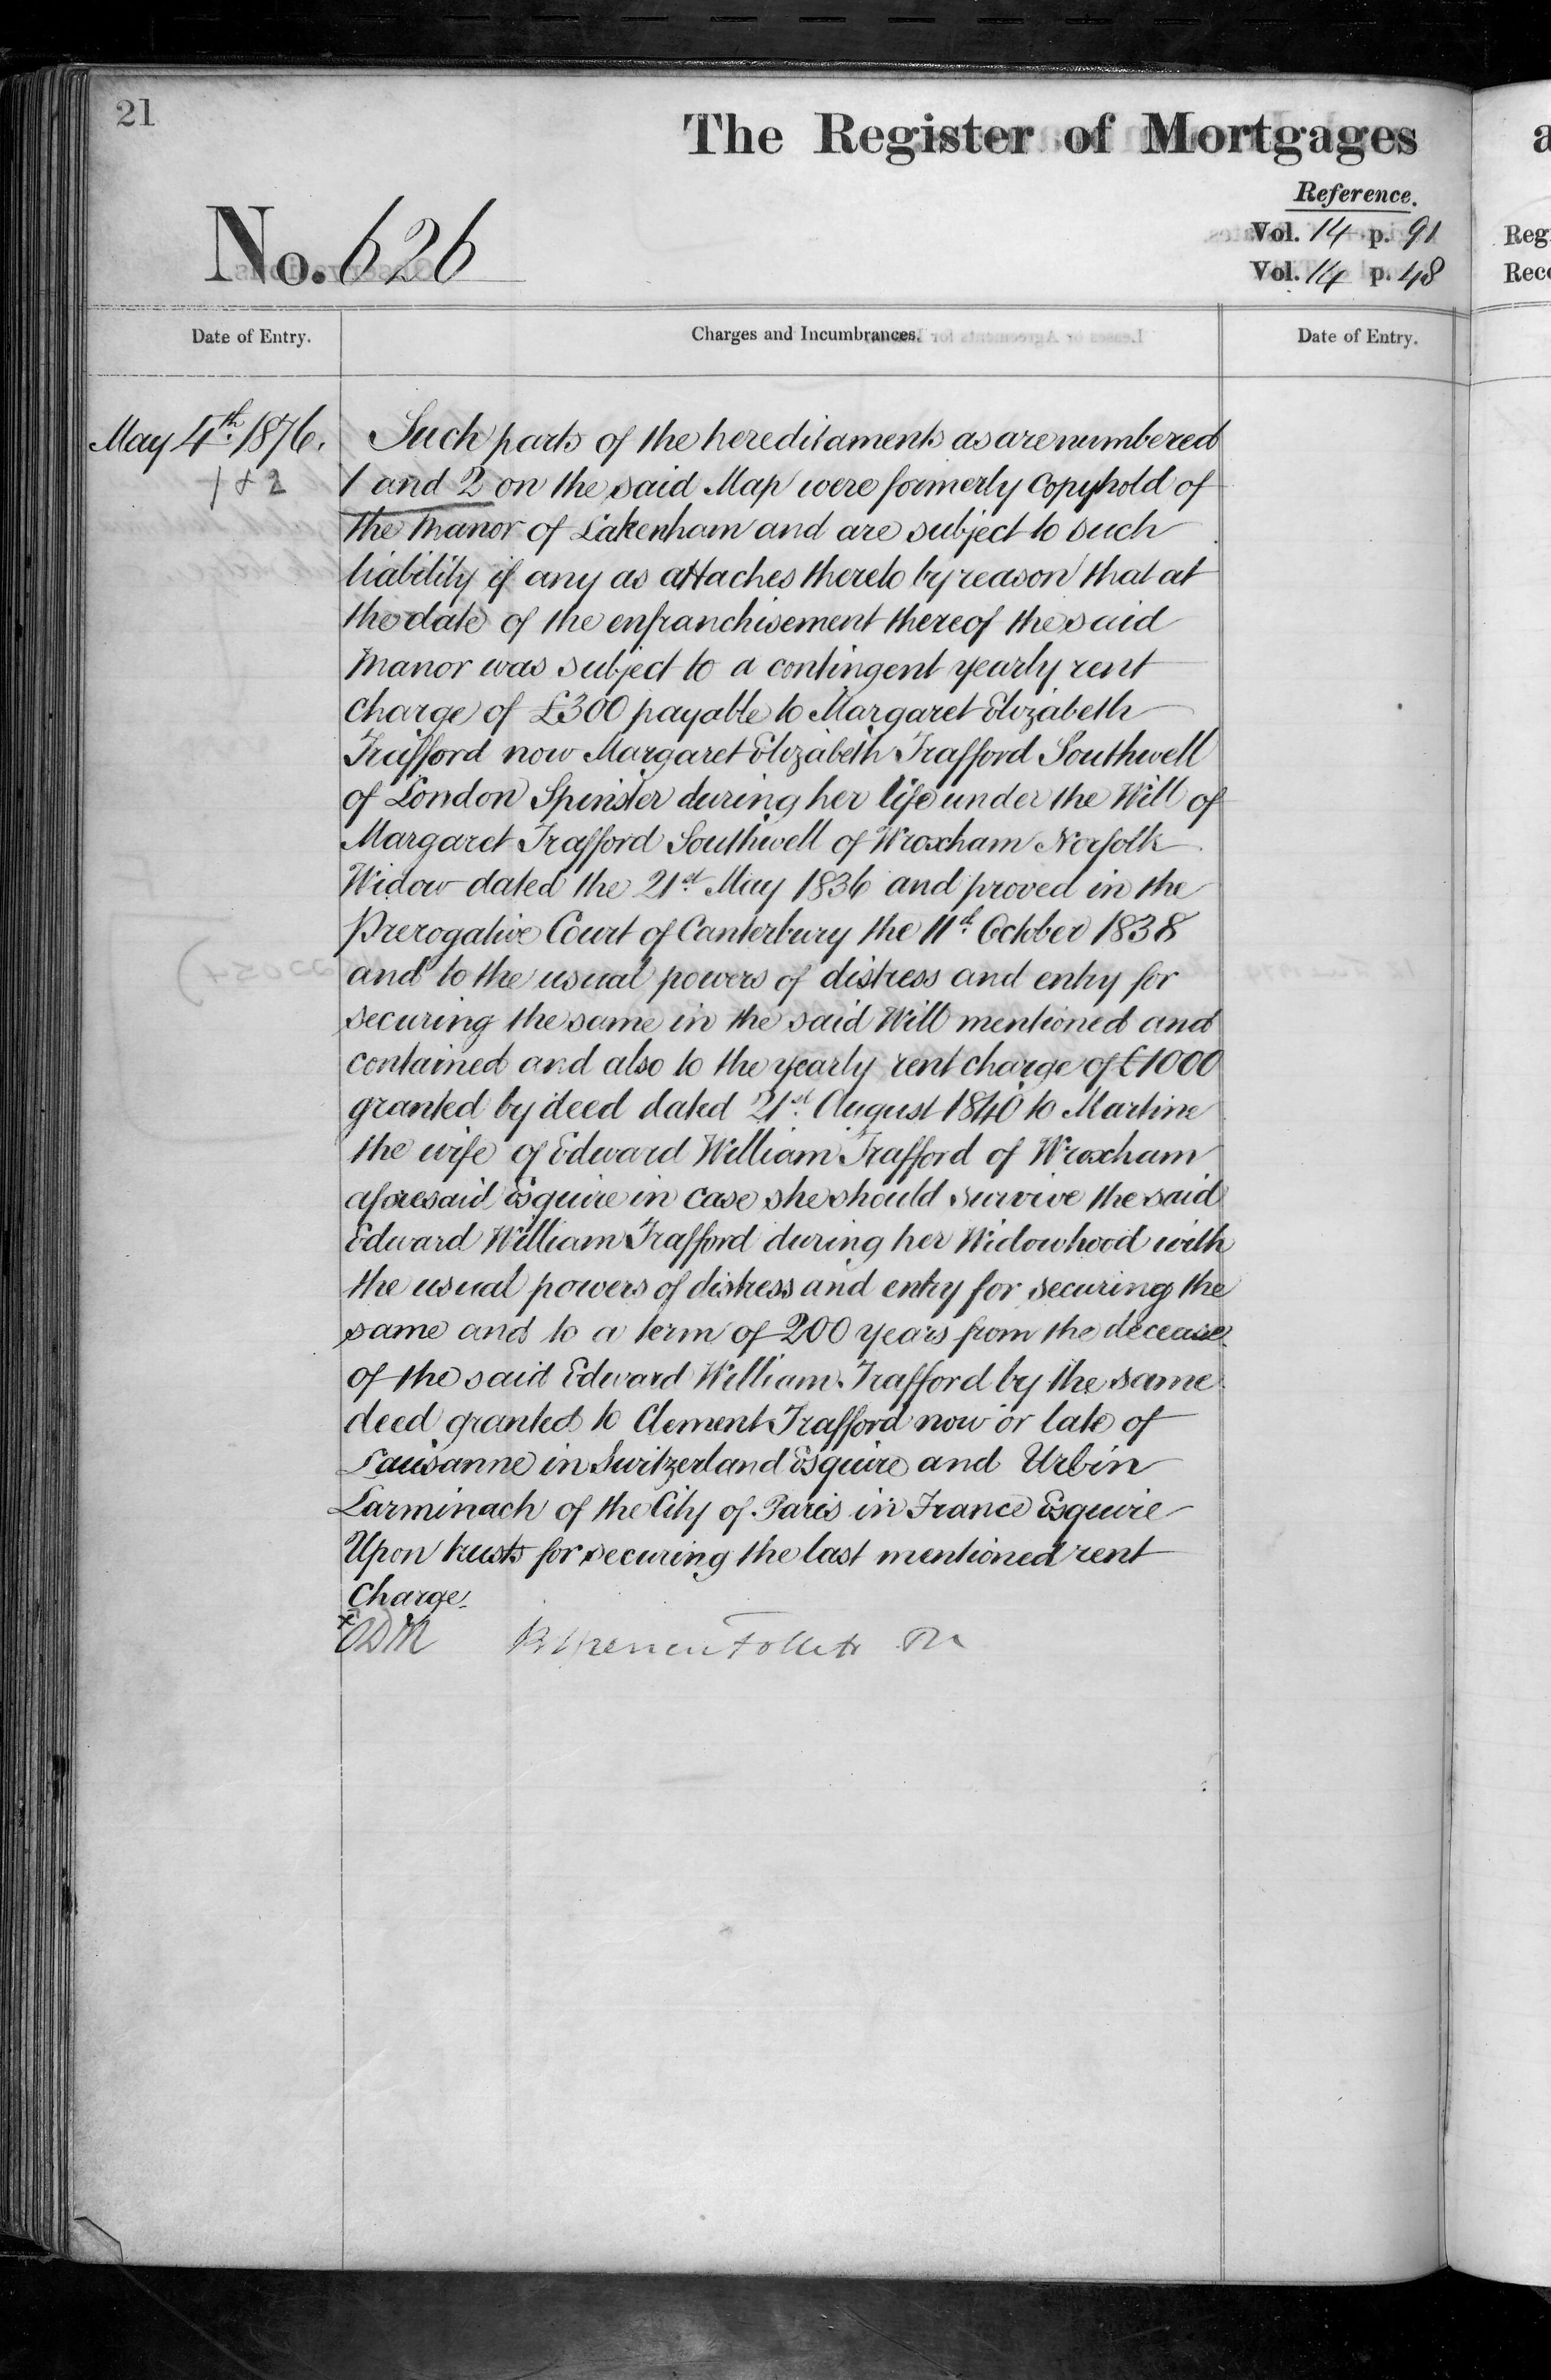 21
The Register of Mortgages
Reference.
No. 626
Vol. 14 p. 91
Vol. 14 p. 48
Date of Entry.
Charges and Incumbrances.
Date of Entry.
May 4th 1876.
1 & 2
Such parts of the hereditaments as are numbered
1 and 2 on the said Map were formerly Copyhold of
the Manor of Lakenham and are subject to such
liability if any as attaches thereto by reason that at
the date of the enfranchisement thereof the said
Manor was subject to a contingent yearly rent
charge of £300 payable to Margaret Elizabeth
Trafford now Margaret Elizabeth Trafford Southwell
of London Spinster during her life under the Will of
Margaret Trafford Southwell of Wroxham Norfolk
Widow dated the 21st May 1836 and proved in the
Prerogative Court of Canterbury the 11th October 1838
and to the usual powers of distress and entry for
securing the same in the said Will mentioned and
contained and also to the yearly rent charge of £1000
granted by deed dated 21st August 1840 to Martine
the wife of Edward William Trafford of Wroxham
aforesaid Esquire in case she should survive the said
Edward William Trafford during her Widowhood with
the usual powers of distress and entry for securing the
same and to a term of 200 years from the decease
of the said Edward William Trafford by the same
deed granted to Clement Trafford now or late of
Lausanne in Switzerland Esquire and Urbin
Larminach of the City of Paris in France Esquire
Upon trusts for securing the last mentioned rent
Charge.
Follett
a
Reg
Reco